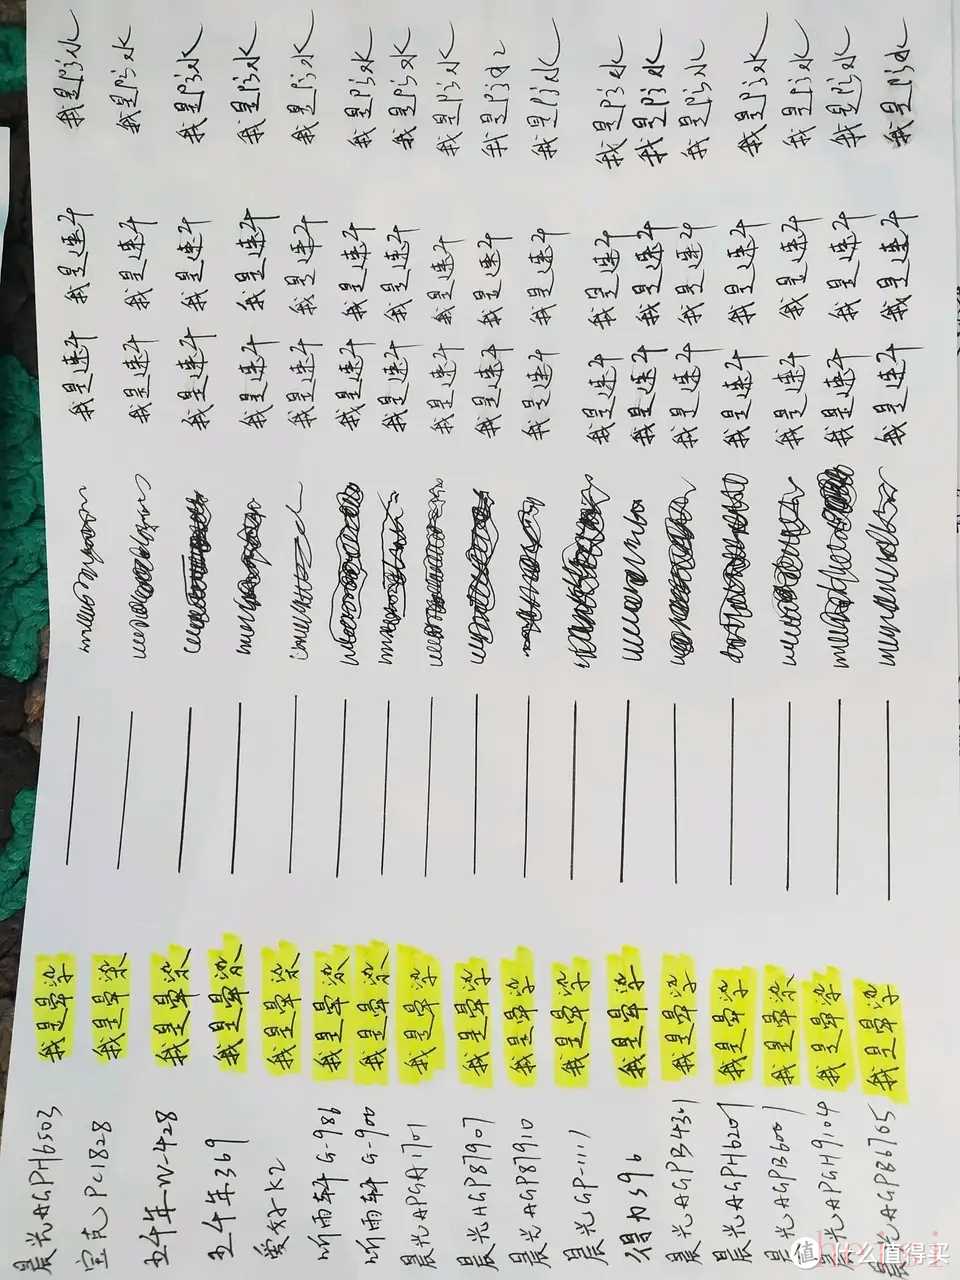 晨光AGPH6503 我是晕染 我是速干 我是速干 我是防水
宝克PC1828 我是晕染 我是速干 我是速干 我是防水
五千年W-428 我是晕染 我是速干 我是速干 我是防水
五千年369 我是晕染 我是速干 我是速干 我是防水
爱好K2 我是晕染 我是速干 我是速干 我是防水
听雨轩G-986 我是晕染 我是速干 我是速干 我是防水
听雨轩G-900 我是晕染 我是速干 我是速干 我是防水
晨光APGA1701 我是晕染 我是速干 我是速干 我是防水
晨光AGP87907 我是晕染 我是速干 我是速干 我是防水
晨光AGP87910 我是晕染 我是速干 我是速干 我是防水
晨光GP-1111 我是晕染 我是速干 我是速干 我是防水
得力S96 我是晕染 我是速干 我是速干 我是防水
晨光AGPB4301 我是晕染 我是速干 我是速干 我是防水
晨光AGPH6207 我是晕染 我是速干 我是速干 我是防水
晨光 我是晕染 我是速干 我是速干 我是防水
晨光APGH9104 我是晕染 我是速干 我是速干 我是防水
晨光AGPB6765 我是晕染 我是速干 我是速干 我是防水
值 什么值得买